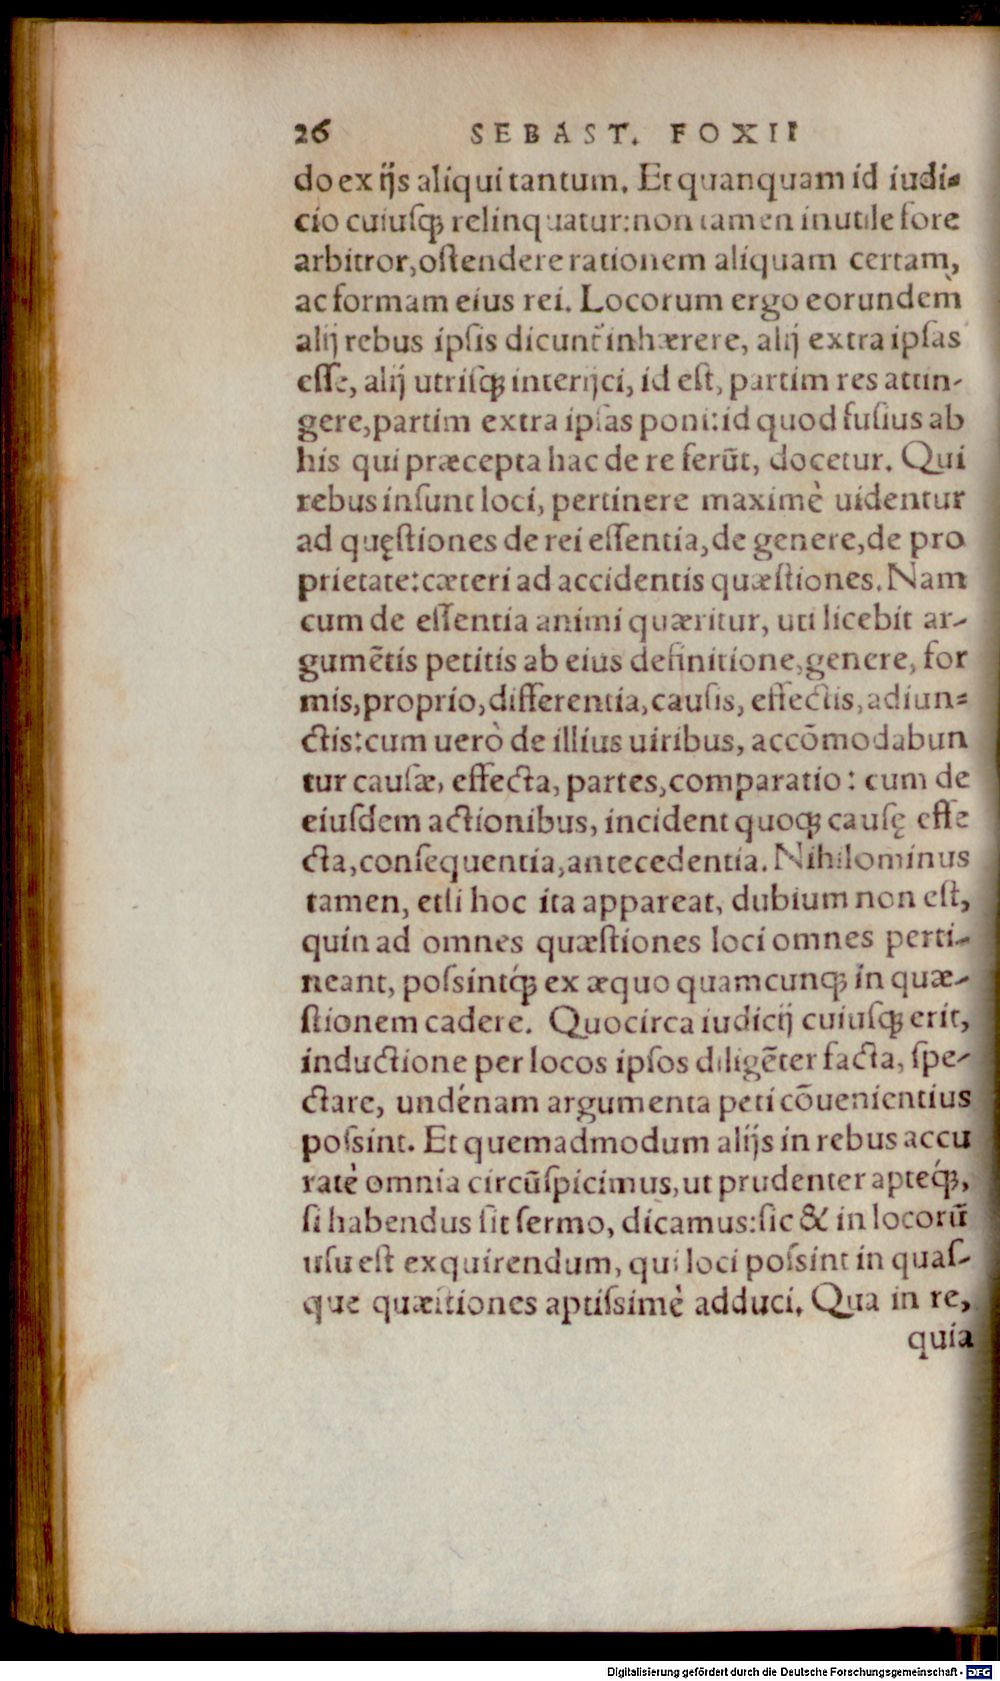 26 SEBAST. FOXII
do ex ijs aliqui tantum. Et quanquam id iudi-
cio cuiusq; relinquatur: non tamen inutile fore
arbitror, ostendere rationem aliquam certam,
ac formam eius rei. Locorum ergo eorundem
alij rebus ipsis dicunt᷑ inhærere, alij extra ipsas
esse, alij utrisq; interijci, id est, partim res attin-
gere, partim extra ipsas poni: id quod fusius ab
his qui præcepta hac de re ferūt, docetur. Qui
rebus insunt loci, pertinere maximè uidentur
ad quęstiones de rei essentia, de genere, de pro
prietate: cæteri ad accidentis quæstiones. Nam
cum de essentia animi quæritur, uti licebit ar-
gumētis petitis ab eius definitione, genere, for
mis, proprio, differentia, causis, effectis, adiun-
ctis: cum uerò de illius uiribus, accōmodabun
tur causæ, effecta, partes, comparatio: cum de
eiusdem actionibus, incident quoq; causę effe
cta, consequentia, antecedentia. Nihilominus
tamen, etsi hoc ita appareat, dubium non est,
quin ad omnes quæstiones loci omnes perti-
neant, possintq́; ex æquo quamcunq; in quæ-
stionem cadere. Quocirca iudicij cuiusq; erit,
inductione per locos ipsos diligēter facta, spe-
ctare, undénam argumenta peti cōuenientius
possint. Et quemadmodum alijs in rebus accu
ratè omnia circūspicimus, ut prudenter apteq́;,
si habendus sit sermo, dicamus: sic & in locorū
usu est exquirendum, qui loci possint in quas-
que quæstiones aptissimè adduci. Qua in re,
quia
Digitalisierung gefördert durch die Deutsche Forschungsgemeinschaft - DFG